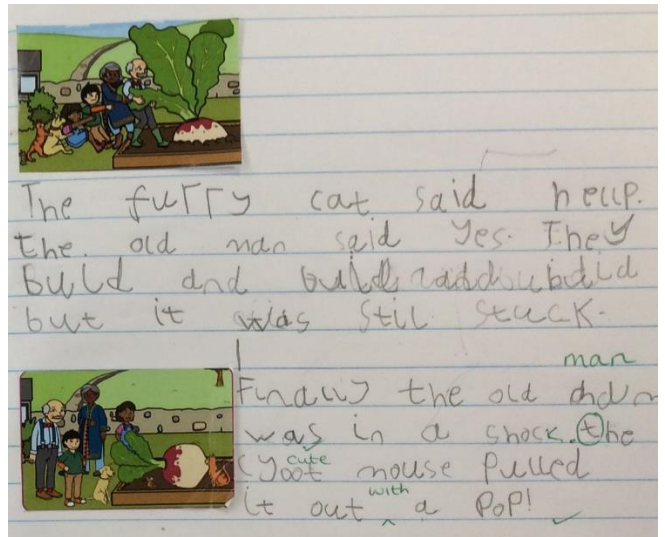 The furry cat said hellp.
the old man said yes. They
bulld and bulld and bulld
but it was still stuck.
man
Finally the old
was in a shock. the
cyoot cute mouse pulled
it out with a PoP!